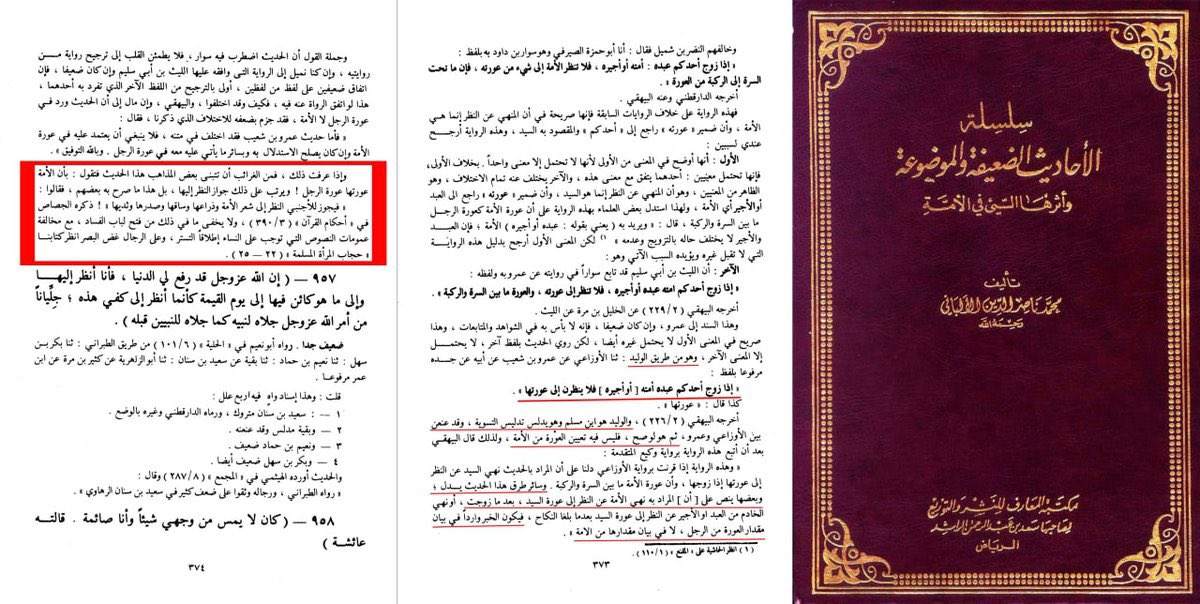 سلسلة
الأحاديث الضعيفة والموضوعة
وأثرها السيئ في الأمة
تأليف
محمد ناصر الدين الألباني
رحمه الله
مكتبة المعارف للنشر والتوزيع
لصاحبها سعد بن عبد الرحمن الراشد
الرياض
وخالفهم النضر بن شميل فقال : أنا أبو حمزة الصيرفي وهو سوار بن داود به بلفظ :
« إذا زوج أحدكم عبده : أمته أو أجيره ، فلا تنظر الأمة إلى شيء من عورته ، فإن ما تحت
السرة إلى الركبة من العورة » .
أخرجه الدارقطني وعنه البيهقي .
فهذه الرواية على خلاف الروايات السابقة فإنها صريحة في أن المنهي عن النظر إنما هي
الأمة ، وأن ضمير « عورته » راجع إلى « أحدكم » والمقصود به السيد ، وهذه الرواية أرجح
عندي لسببين :
الأول : أنها أوضح في المعنى من الأولى لأنها لا تحتمل إلا معنى واحداً . بخلاف الأولى ،
فإنها تحتمل معنيين : أحدهما يتفق مع معنى هذه ، والآخر يختلف عنه تمام الاختلاف ، وهو
الظاهر من المعنيين ، وهو أن المنهي عن النظر إنما هو السيد ، وأن ضمير « عورته » راجع الى العبد
أو الأجير أي الأمة ، ولهذا استدل بعض العلماء بهذه الرواية على أن عورة الأمة كعورة الرجل
ما بين السرة والركبة ، قال : « ويريد به ( يعني بقوله : عبده أو أجيره ) الأمة ، فإن العبد
والأجير لا يختلف حاله بالتزويج وعدمه » (١) لكن المعنى الأول أرجح بدليل هذه الرواية
التي لا تقبل غيره ويؤيده السبب الآتي وهو :
الآخر : أن الليث بن أبي سليم قد تابع سواراً في روايته عن عمرو به ولفظه :
« إذا زوج أحدكم عبده امته أو أجيره ، فلا تنظر إلى عورته ، والعورة ما بين السرة والركبة » .
أخرجه البيهقي ( ٢٢٩/٢ ) عن الخليل بن مرة عن الليث .
وهذا السند إلى عمرو ، وإن كان ضعيفا ، فإنه لا بأس به في الشواهد والمتابعات ، وهذا
صريح في المعنى الأول لا يحتمل غيره أيضا ، لكن روي الحديث بلفظ آخر ، لا يحتمل
إلا المعنى الآخر ، وهو من طريق الوليد : ثنا الأوزاعي عن عمرو بن شعيب عن أبيه عن جده
مرفوعا بلفظ :
« إذا زوج أحدكم عبده أمته [ أو أجيره ] فلا ينظرن إلى عورتها » .
كذا قال : « عورتها » .
أخرجه البيهقي ( ٢٢٦/٢ ) ، والوليد هو ابن مسلم وهو يدلس تدليس التسوية ، وقد عنعن
بين الأوزاعي وعمرو ، ثم هو لو صح ، فليس فيه تعيين العورة من الأمة ، ولذلك قال البيهقي
بعد أن أتبع هذه الرواية برواية وكيع المتقدمة :
« وهذه الرواية إذا قرنت برواية الأوزاعي دلنا على أن المراد بالحديث نهي السيد عن النظر
إلى عورتها إذا زوجها ، وأن عورة الأمة ما بين السرة والركبة . وسائر طرق هذا الحديث يدل ؛
وبعضها ينص على [ أن ] المراد به نهي الأمة عن النظر إلى عورة السيد ، بعد ما زوجت ، أو نهي
الخادم من العبد أو الأجير عن النظر إلى عورة السيد بعدما بلغا النكاح ، فيكون الخبر وارداً في بيان
مقدار العورة من الرجل ، لا في بيان مقدارها من الامة » .
( ١ ) انظر الحاشية على « المقنع » ( ١١٠/١ ) .
٣٧٣
وجملة القول أن الحديث اضطرب فيه سوار ، فلا يطمئن القلب إلى ترجيح رواية من
روايتيه ، وإن كنا نميل إلى الرواية التى وافقه عليها الليث بن أبي سليم وإن كان ضعيفا ، فإن
اتفاق ضعيفين على لفظ من لفظين ، أولى بالترجيح من اللفظ الآخر الذي تفرد به أحدهما ،
هذا لو اتفق الرواة عنه فيه ، فكيف وقد اختلفوا ، والبيهقي ، وإن مال إلى أن الحديث ورد في
عورة الرجل لا الأمة ، فقد جزم بضعفه للاختلاف الذي ذكرنا ، فقال :
« فأما حديث عمرو بن شعيب فقد اختلف في متنه ، فلا ينبغي أن يعتمد عليه في عورة
الأمة وإن كان يصلح الاستدلال به وبسائر ما يأتي عليه معه في عورة الرجل . وبالله التوفيق » .
وإذا عرفت ذلك ، فمن الغرائب أن تتبنى بعض المذاهب هذا الحديث فتقول : بأن الأمة
عورتها عورة الرجل ! ويرتب على ذلك جواز النظر إليها ، بل هذا ما صرح به بعضهم ، فقالوا :
« فيجوز للأجنبي النظر إلى شعر الأمة وذراعها وساقها وصدرها وثديها » ! ذكره الجصاص
في « أحكام القرآن » ( ٣٩٠/٣ ) ، ولا يخفى ما في ذلك من فتح لباب الفساد ، مع مخالفة
عمومات النصوص التي توجب على النساء إطلاقاً التستر ، وعلى الرجال غض البصر انظر كتابنا
« حجاب المرأة المسلمة » ( ٢٢ — ٢٥ ) .
٩٥٧ — ( إن الله عزوجل قد رفع لي الدنيا ، فأنا أنظر إليها
وإلى ما هو كائن فيها إلى يوم القيمة كأنما أنظر إلى كفي هذه ؛ جلياناً
من أمر الله عزوجل جلاه لنبيه كما جلاه للنبيين قبله ) .
ضعيف جدا . رواه أبو نعيم في « الحلية » ( ١٠١/٦ ) من طريق الطبراني : ثنا بكر بن
سهل : ثنا نعيم بن حماد : ثنا بقية عن سعيد بن سنان : ثنا أبو الزاهرية عن كثير بن مرة عن ابن
عمر مرفوعا .
قلت : وهذا إسناد واه فيه اربع علل :
١ — : سعيد بن سنان متروك ، ورماه الدارقطني وغيره بالوضع .
٢ — وبقية مدلس وقد عنعنه .
٣ — ونعيم بن حماد ضعيف .
٤ — وبكر بن سهل ضعيف أيضا .
والحديث أورده الهيثمي في « المجمع » ( ٢٨٧/٨ ) وقال :
« رواه الطبراني ، ورجاله وثقوا على ضعف كثير في سعيد بن سنان الرهاوي » .
٩٥٨ — ( كان لا يمس من وجهي شيئاً وأنا صائمة . قالته
عائشة )
٣٧٤